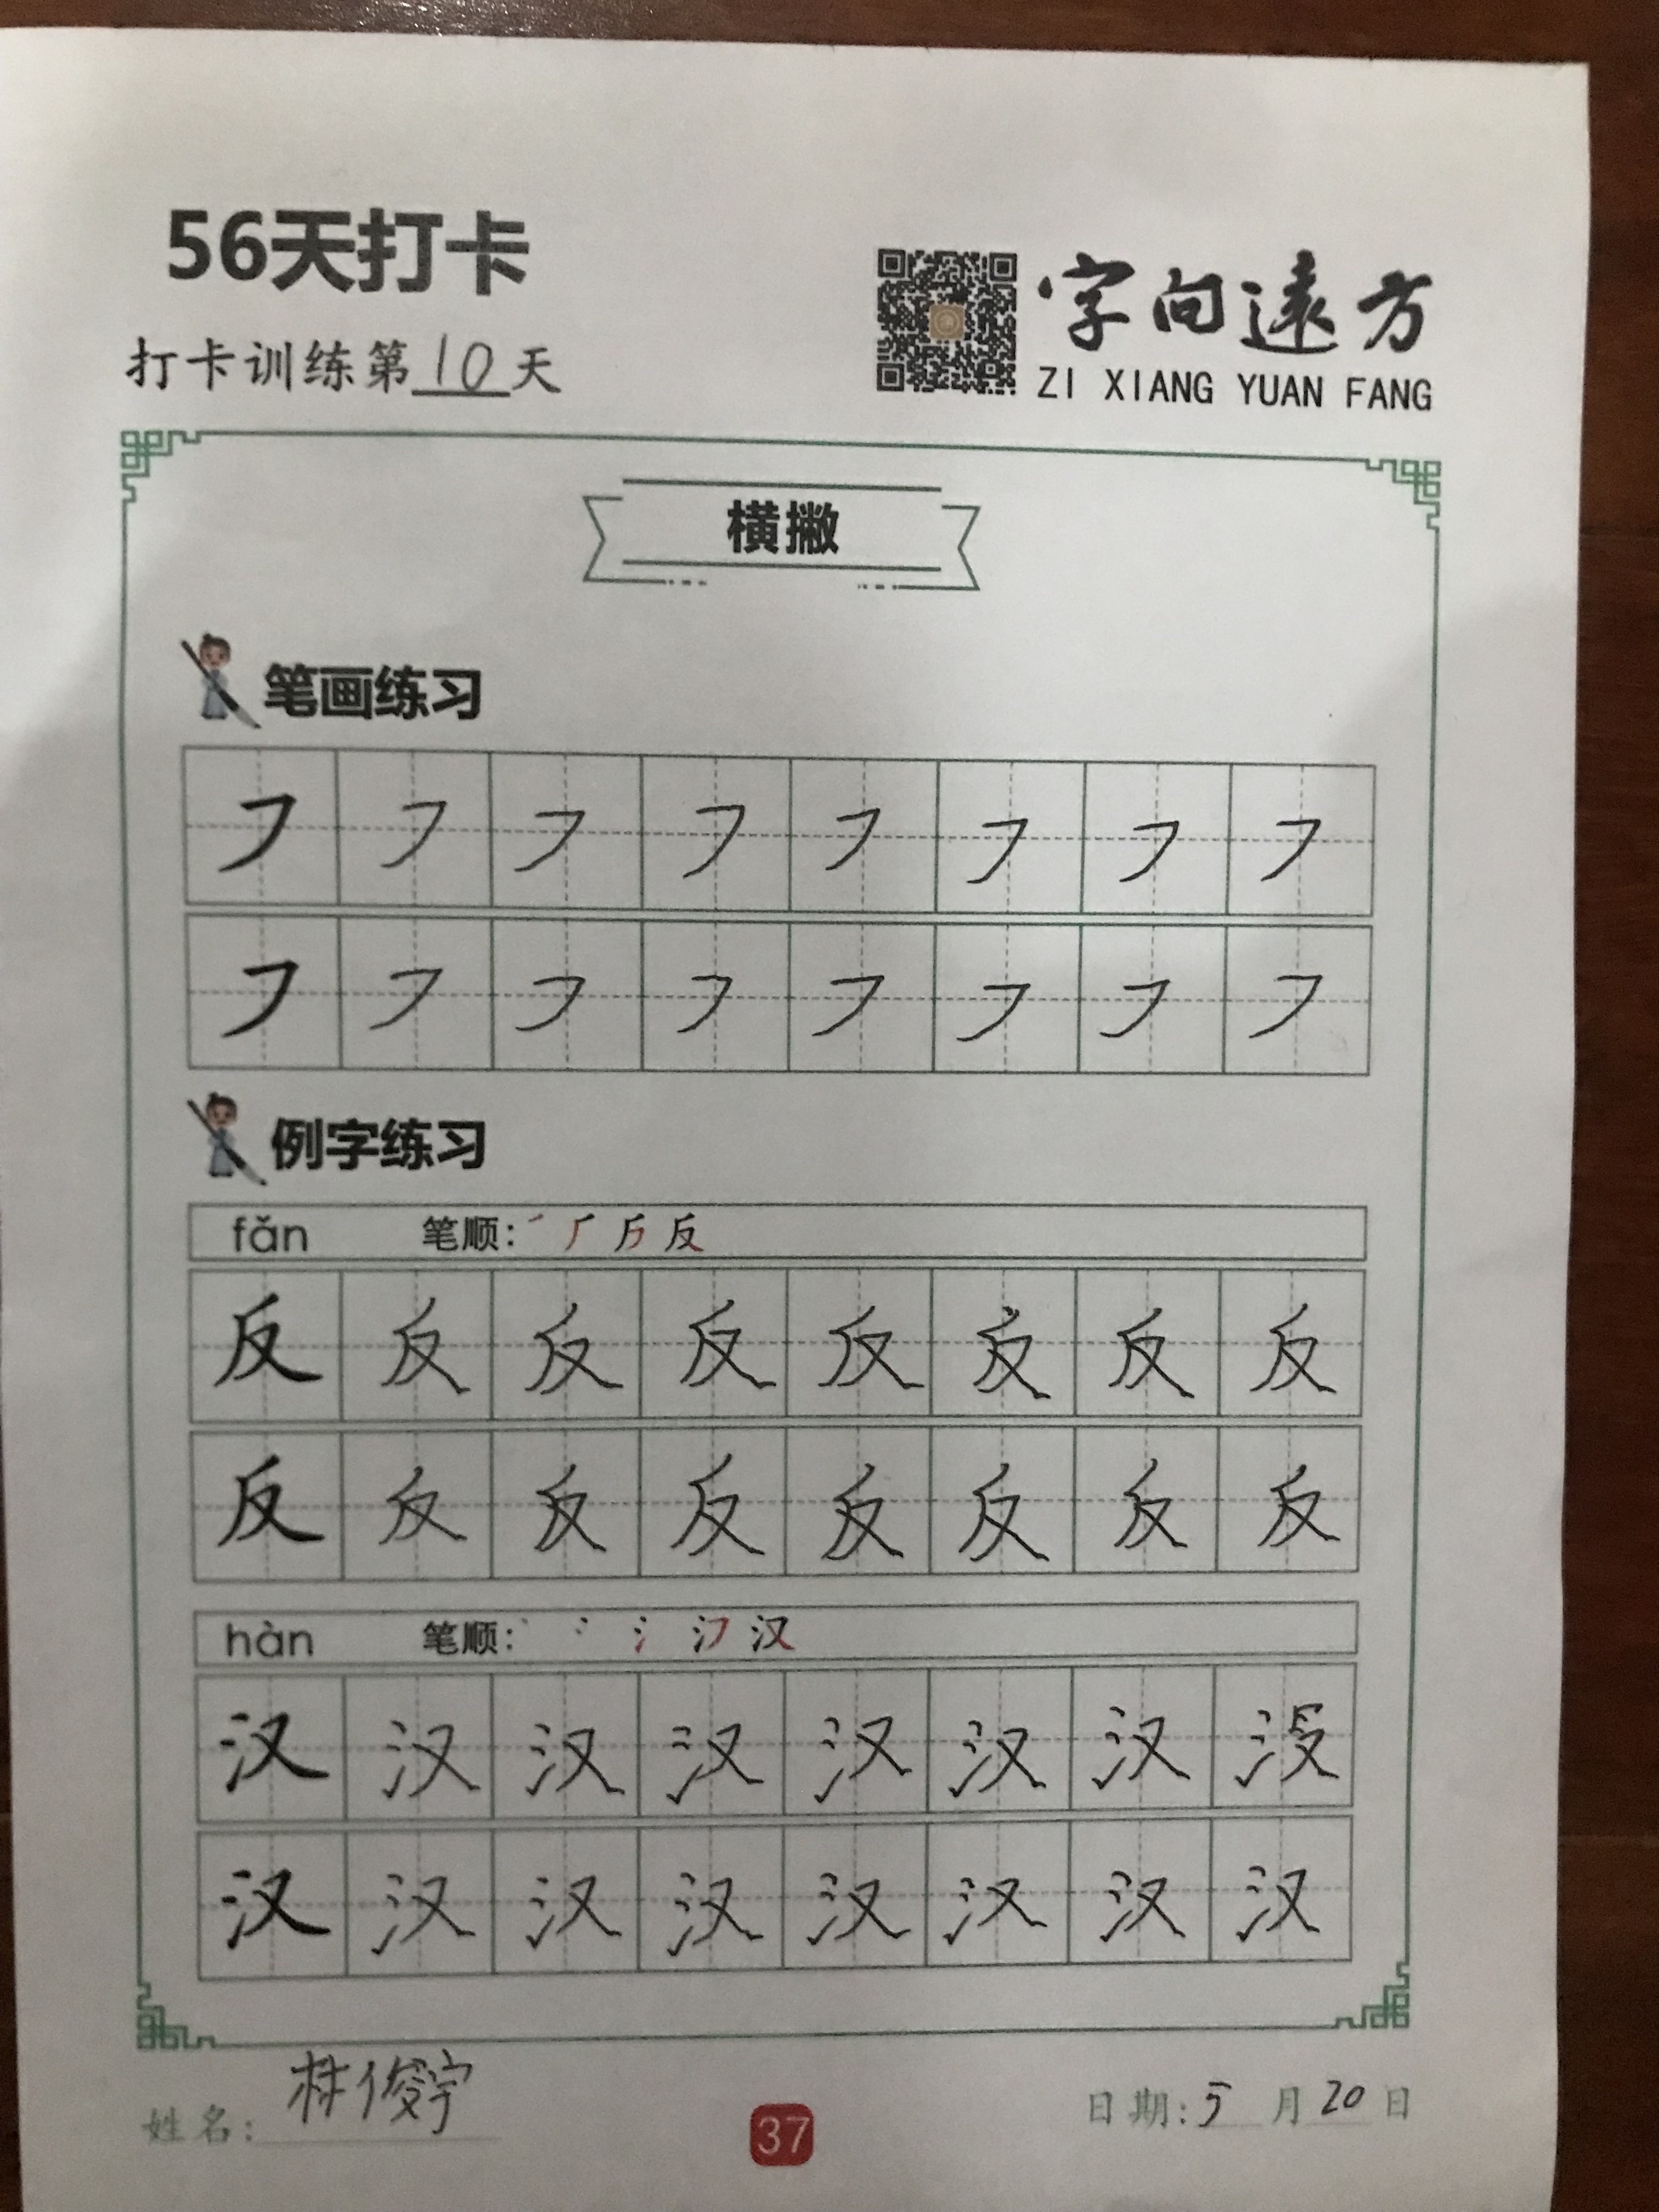 56天打卡
字向遠方
打卡训练第10天
ZI XIANG YUAN FANG
横撇
笔画练习
㇇ ㇇ ㇇ ㇇ ㇇ ㇇ ㇇ ㇇
㇇ ㇇ ㇇ ㇇ ㇇ ㇇ ㇇ ㇇
例字练习
fǎn 笔顺: 反
反 反 反 反 反 反 反 反
反 反 反 反 反 反 反 反
hàn 笔顺: 汉
汉 汉 汉 汉 汉 汉 汉 没
汉 汉 汉 汉 汉 汉 汉 汉
姓名: 林俊宇
37
日期: 5月20日